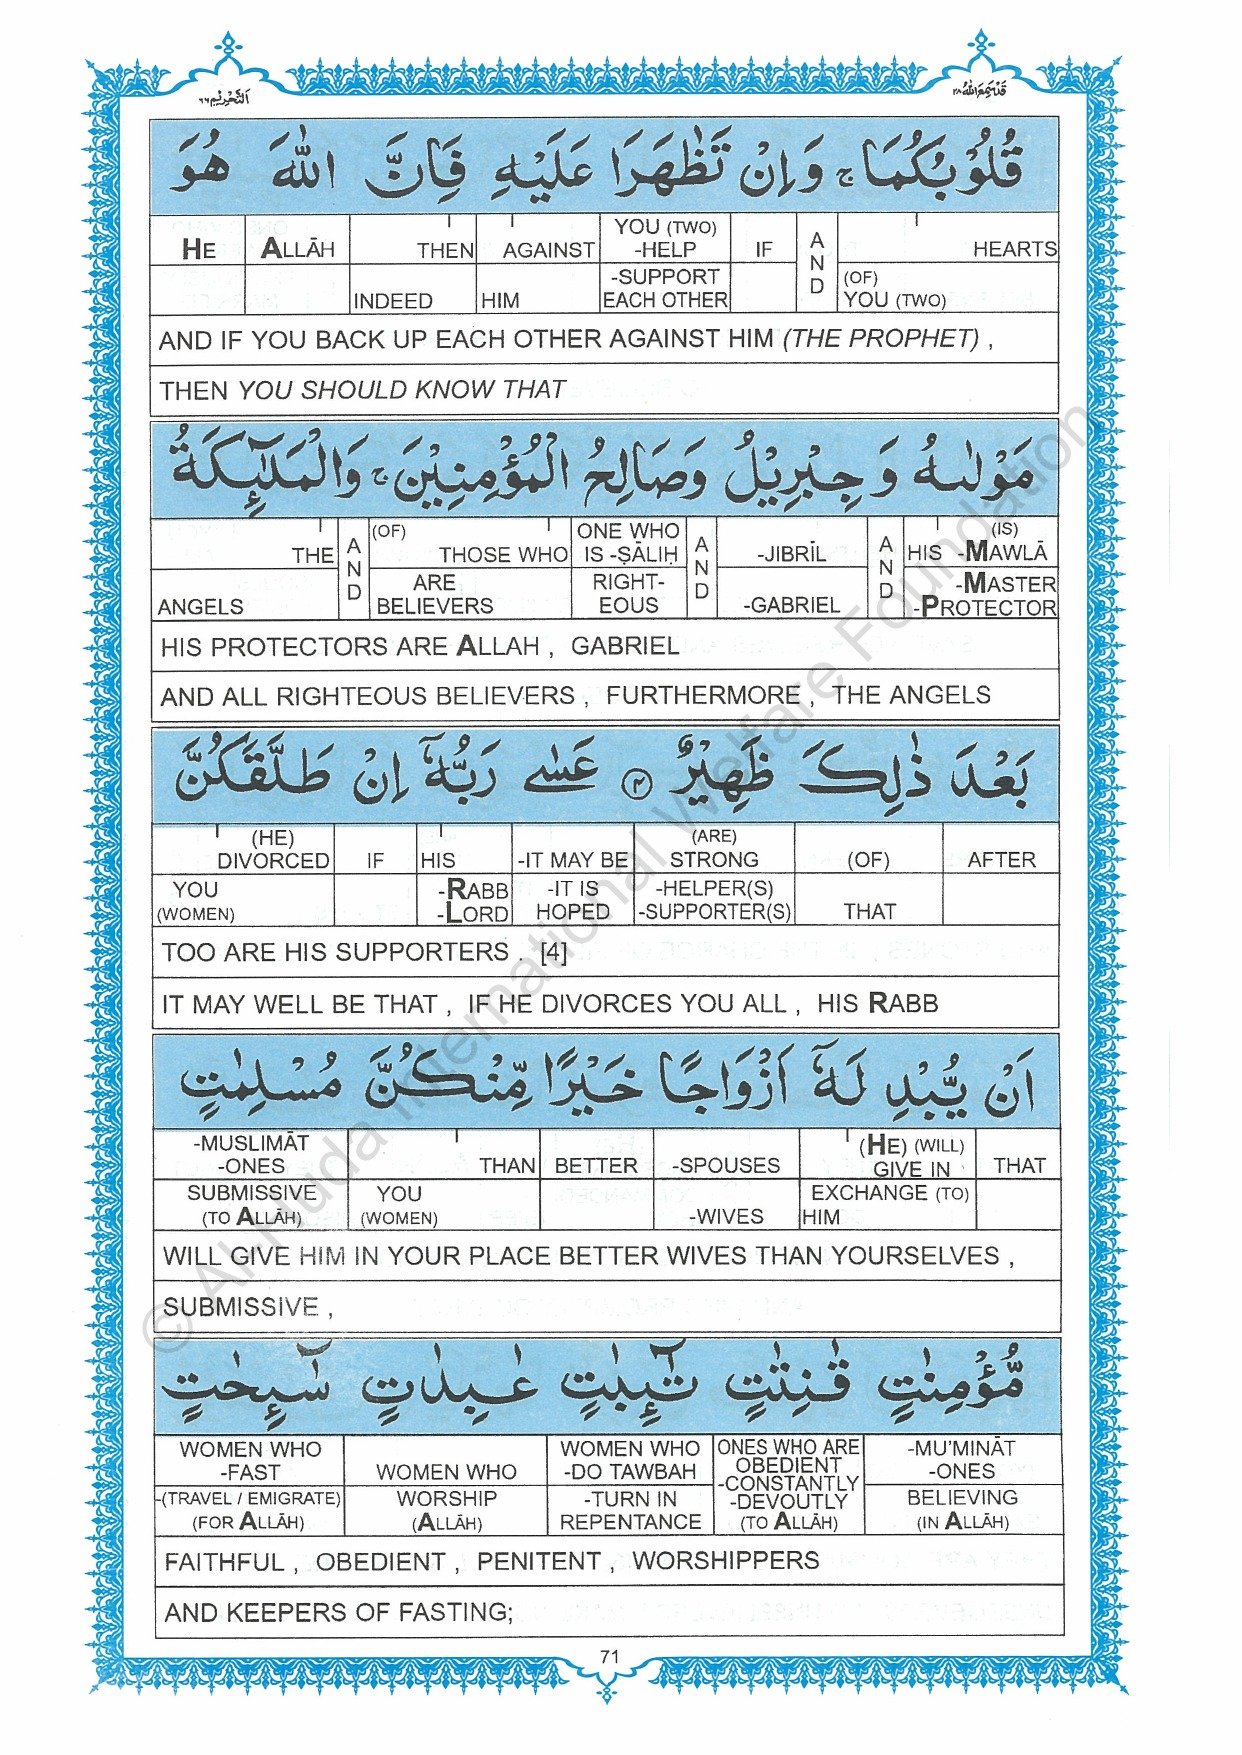 التحريم ٦٦
قد سمع الله ٢٨
قُلُوْبُكُمَا ۚ وَاِنْ تَظٰهَرَا عَلَيْهِ فَاِنَّ اللّٰهَ هُوَ
HE ALLĀH THEN AGAINST YOU (TWO) -HELP IF AND HEARTS
INDEED HIM -SUPPORT EACH OTHER (OF) YOU (TWO)
AND IF YOU BACK UP EACH OTHER AGAINST HIM (THE PROPHET) ,
THEN YOU SHOULD KNOW THAT
مَوْلٰىهُ وَ جِبْرِيْلُ وَصَالِحُ الْمُؤْمِنِيْنَ ۚ وَالْمَلٰٓئِكَةُ
THE AND (OF) THOSE WHO ONE WHO IS -ṢĀLIḤ AND -JIBRĪL AND HIS (IS) -MAWLĀ
ANGELS ARE BELIEVERS RIGHT-EOUS -GABRIEL -MASTER -PROTECTOR
HIS PROTECTORS ARE ALLAH , GABRIEL
AND ALL RIGHTEOUS BELIEVERS , FURTHERMORE , THE ANGELS
بَعْدَ ذٰلِكَ ظَهِيْرٌ ﴿۴﴾ عَسٰى رَبُّهٗٓ اِنْ طَلَّقَكُنَّ
(HE) DIVORCED IF HIS -IT MAY BE (ARE) STRONG (OF) AFTER
YOU (WOMEN) -RABB -LORD -IT IS HOPED -HELPER(S) -SUPPORTER(S) THAT
TOO ARE HIS SUPPORTERS . [4]
IT MAY WELL BE THAT , IF HE DIVORCES YOU ALL , HIS RABB
اَنْ يُّبْدِلَهٗٓ اَزْوَاجًا خَيْرًا مِّنْكُنَّ مُسْلِمٰتٍ
-MUSLIMĀT -ONES THAN BETTER -SPOUSES (HE) (WILL) GIVE IN THAT
SUBMISSIVE (TO ALLĀH) YOU (WOMEN) -WIVES EXCHANGE (TO) HIM
WILL GIVE HIM IN YOUR PLACE BETTER WIVES THAN YOURSELVES ,
SUBMISSIVE ,
مُّؤْمِنٰتٍ قٰنِتٰتٍ تٰٓئِبٰتٍ عٰبِدٰتٍ سٰٓئِحٰتٍ
WOMEN WHO -FAST WOMEN WHO WOMEN WHO -DO TAWBAH ONES WHO ARE OBEDIENT -CONSTANTLY -MU'MINĀT -ONES
-(TRAVEL / EMIGRATE) (FOR ALLĀH) WORSHIP (ALLĀH) -TURN IN REPENTANCE -DEVOUTLY (TO ALLĀH) BELIEVING (IN ALLĀH)
FAITHFUL , OBEDIENT , PENITENT , WORSHIPPERS
AND KEEPERS OF FASTING;
71
© Al-Huda International Welfare Foundation